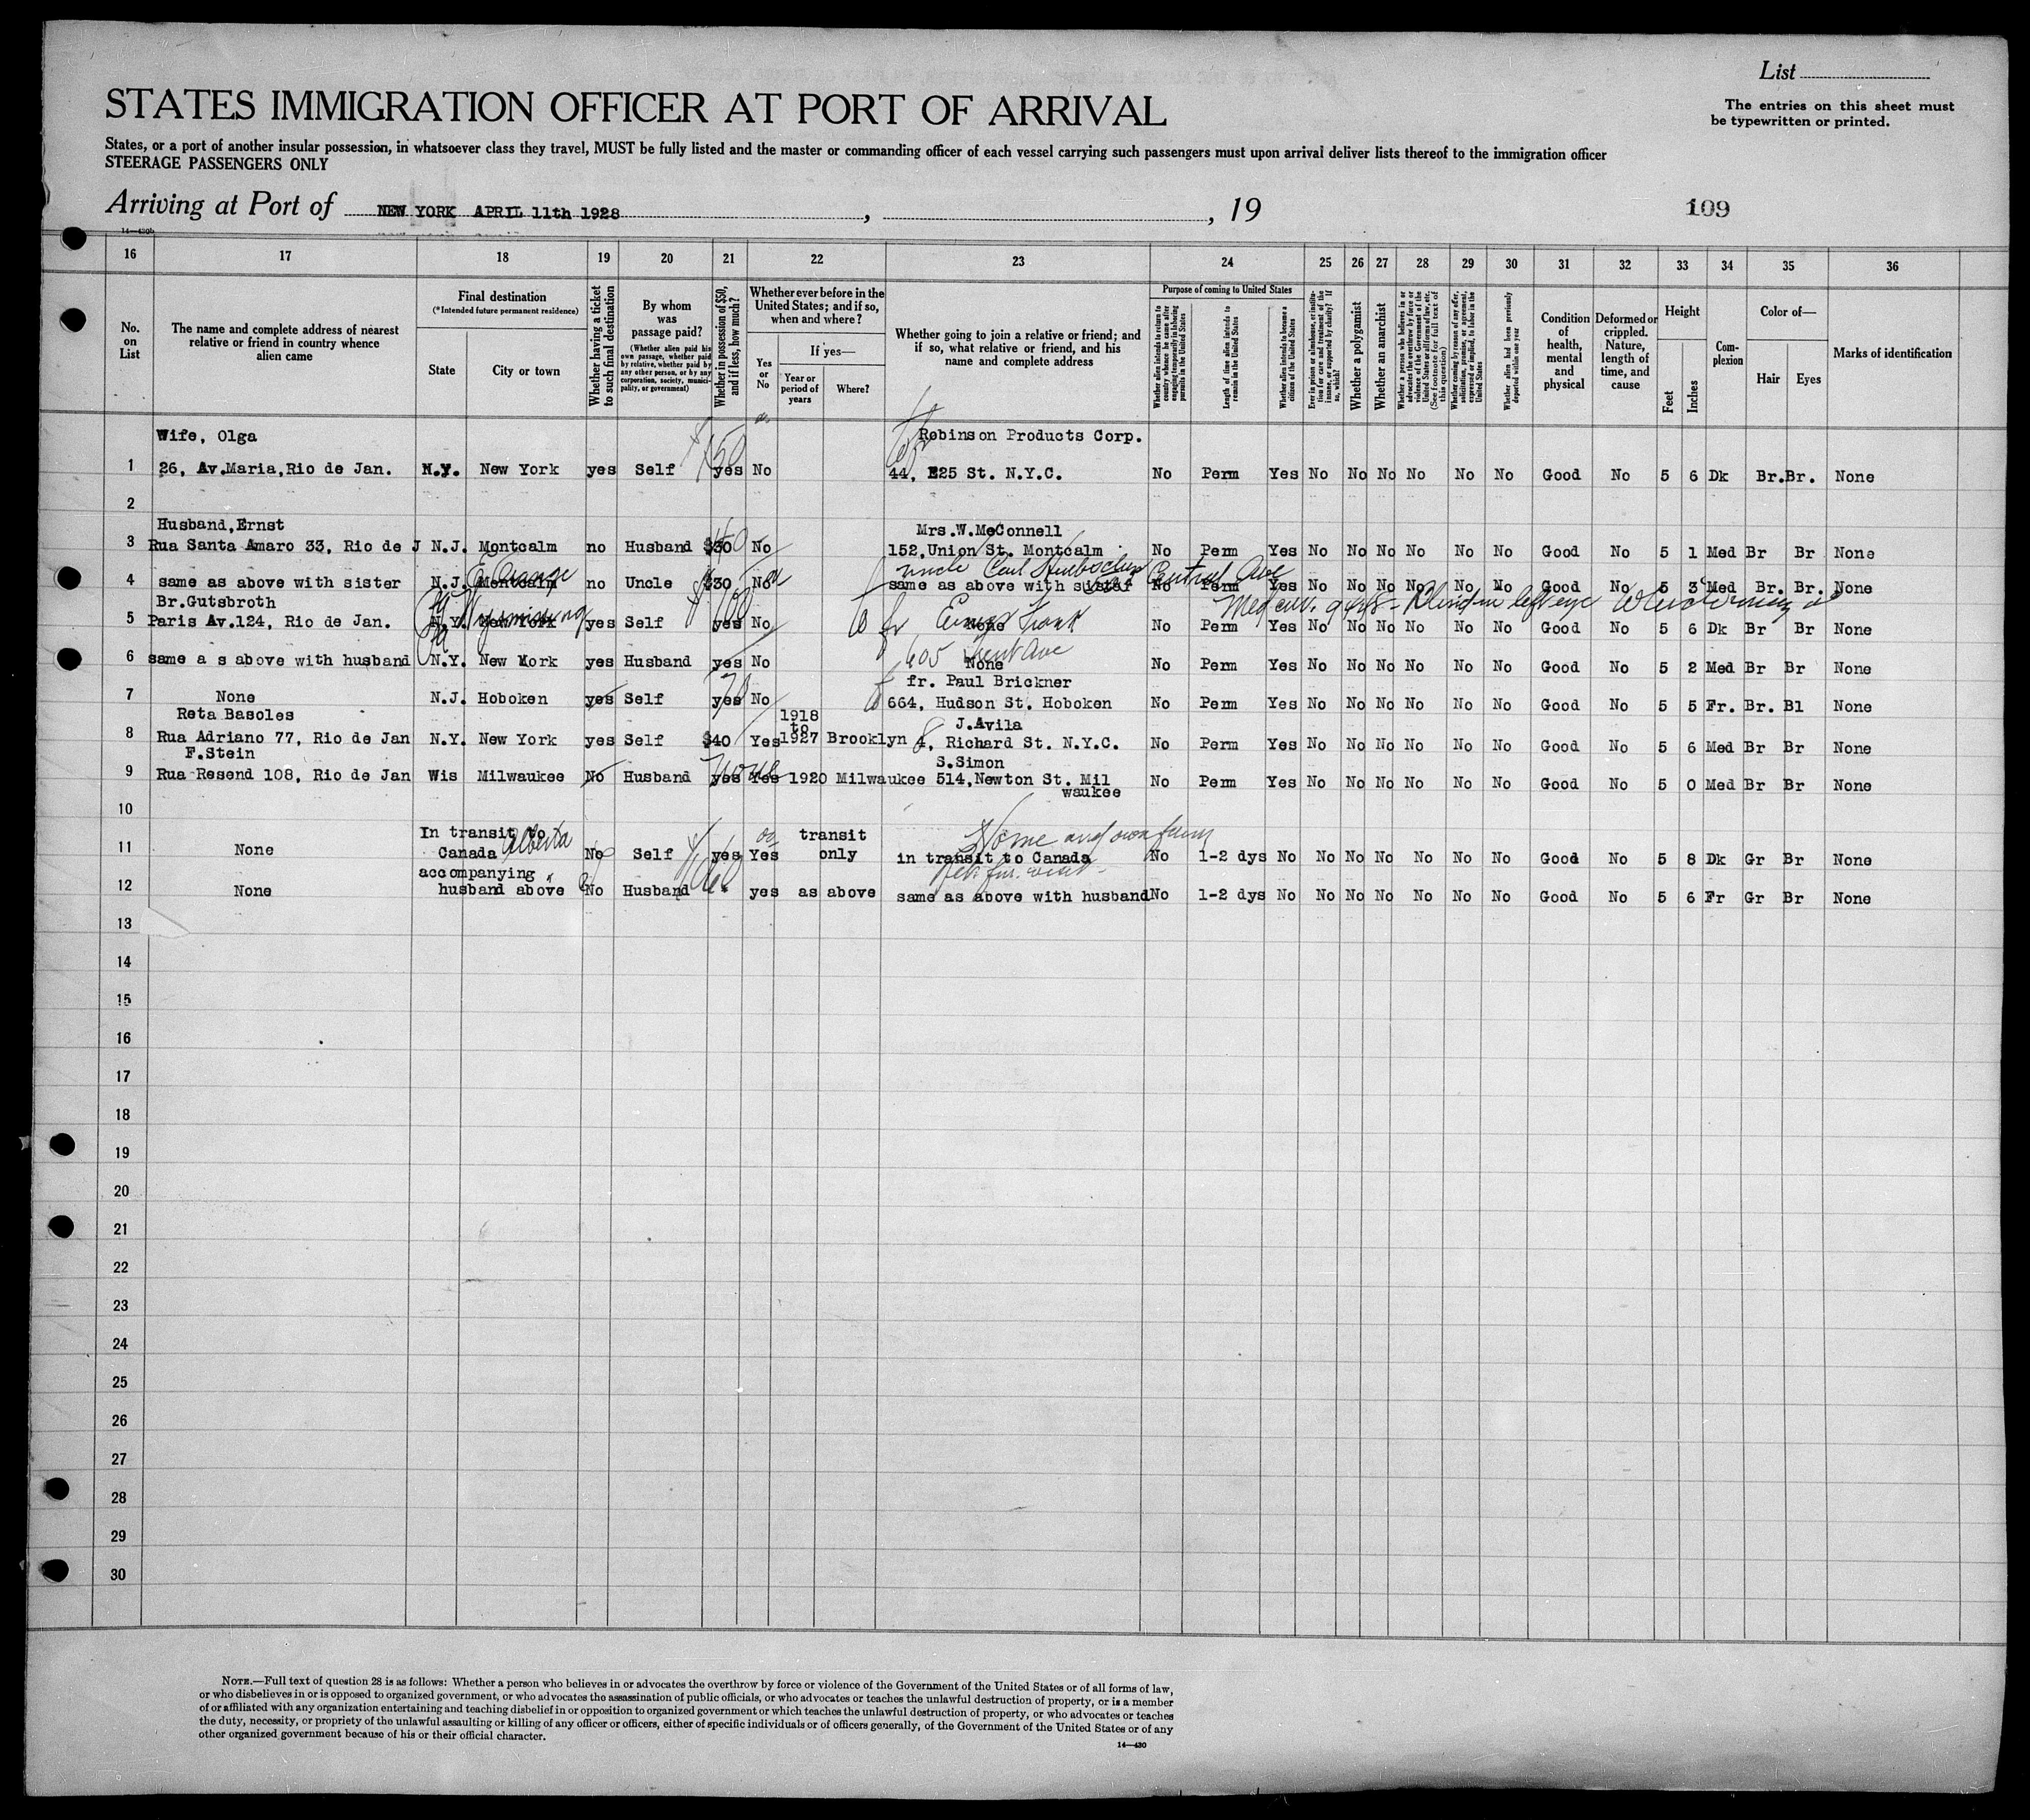 List
STATES IMMIGRATION OFFICER AT PORT OF ARRIVAL
The entries on this sheet must
be typewritten or printed.
States, or a port of another insular possession, in whatsoever class they travel, MUST be fully listed and the master or commanding officer of each vessel carrying such passengers must upon arrival deliver lists thereof to the immigration officer
STEERAGE PASSENGERS ONLY
Arriving at Port of NEW YORK APRIL 11th 1928, , 19
109
14—430b
16 17 18 19 20 21 22 23 24 25 26 27 28 29 30 31 32 33 34 35 36
No. on List
The name and complete address of nearest relative or friend in country whence alien came
Final destination
(*Intended future permanent residence)
State
City or town
Whether having a ticket to such final destination
By whom was passage paid?
(Whether alien paid his own passage, whether paid by relative, whether paid by any other person, or by any corporation, society, municipality, or government)
Whether in possession of $50, and if less, how much?
Whether ever before in the United States; and if so, when and where?
Yes or No
If yes—
Year or period of years
Where?
Whether going to join a relative or friend; and if so, what relative or friend, and his name and complete address
Purpose of coming to United States
Whether alien intends to return to country whence he came after engaging temporarily in laboring pursuits in the United States
Length of time alien intends to remain in the United States
Whether alien intends to become a citizen of the United States
Ever in prison or almshouse, or institution for care and treatment of the insane, or supported by charity? If so, which?
Whether a polygamist
Whether an anarchist
Whether a person who believes in or advocates the overthrow by force or violence of the Government of the United States or all forms of law, etc. (See footnote for full text of this question)
Whether coming by reason of any offer, solicitation, promise, or agreement, expressed or implied, to labor in the United States
Whether alien had been previously deported within one year
Condition of health, mental and physical
Deformed or crippled. Nature, length of time, and cause
Height
Feet
Inches
Complexion
Color of—
Hair
Eyes
Marks of identification
Wife, Olga Robinson Products Corp.
1 26, Av.Maria,Rio de Jan. N.Y. New York yes Self 150 yes No 44, E25 St. N.Y.C. No Perm Yes No No No No No No Good No 5 6 Dk Br. Br. None
2
Husband,Ernst Mrs.W.McConnell
3 Rua Santa Amaro 33, Rio de J N.J. Montcalm no Husband $30 No 152,Union St. Montcalm No Perm Yes No No No No No No Good No 5 1 Med Br Br None
E. Orange uncle Carl Central Ave
4 same as above with sister N.J. Montcalm no Uncle $30 No same as above with sister No Perm Yes No No No No No No Good No 5 3 Med Br. Br. None
Br.Gutsbroth Pa Wyomissing 100 Med cert. Blind in left eye
5 Paris Av.124, Rio de Jan. N.Y. New York yes Self yes No fr None No Perm Yes No No No No No No Good No 5 6 Dk Br Br None
605 Ave
6 same a s above with husband N.Y. New York yes Husband yes No None No Perm Yes No No No No No No Good No 5 2 Med Br Br None
fr. Paul Brickner
7 None N.J. Hoboken yes Self yes No 664, Hudson St. Hoboken No Perm Yes No No No No No No Good No 5 5 Fr. Br. Bl None
Reta Basoles 1918 to J.Avila
8 Rua Adriano 77, Rio de Jan N.Y. New York yes Self $40 Yes 1927 Brooklyn 4, Richard St. N.Y.C. No Perm Yes No No No No No No Good No 5 6 Med Br Br None
F.Stein S.Simon
9 Rua Resend 108, Rio de Jan Wis Milwaukee No Husband yes Yes 1920 Milwaukee 514,Newton St. Mil No Perm Yes No No No No No No Good No 5 0 Med Br Br None
waukee
10
In transit to Alberta transit Home and own farm
11 None Canada No Self yes Yes only in transit to Canada No 1-2 dys No No No No No No No Good No 5 8 Dk Gr Br None
accompanying
12 None husband above No Husband yes as above same as above with husband No 1-2 dys No No No No No No No Good No 5 6 Fr Gr Br None
13
14
15
16
17
18
19
20
21
22
23
24
25
26
27
28
29
30
NOTE.—Full text of question 28 is as follows: Whether a person who believes in or advocates the overthrow by force or violence of the Government of the United States or of all forms of law,
or who disbelieves in or is opposed to organized government, or who advocates the assassination of public officials, or who advocates or teaches the unlawful destruction of property, or is a member
of or affiliated with any organization entertaining and teaching disbelief in or opposition to organized government or which teaches the unlawful destruction of property, or who advocates or teaches
the duty, necessity, or propriety of the unlawful assaulting or killing of any officer or officers, either of specific individuals or of officers generally, of the Government of the United States or of any
other organized government because of his or their official character.
14—430